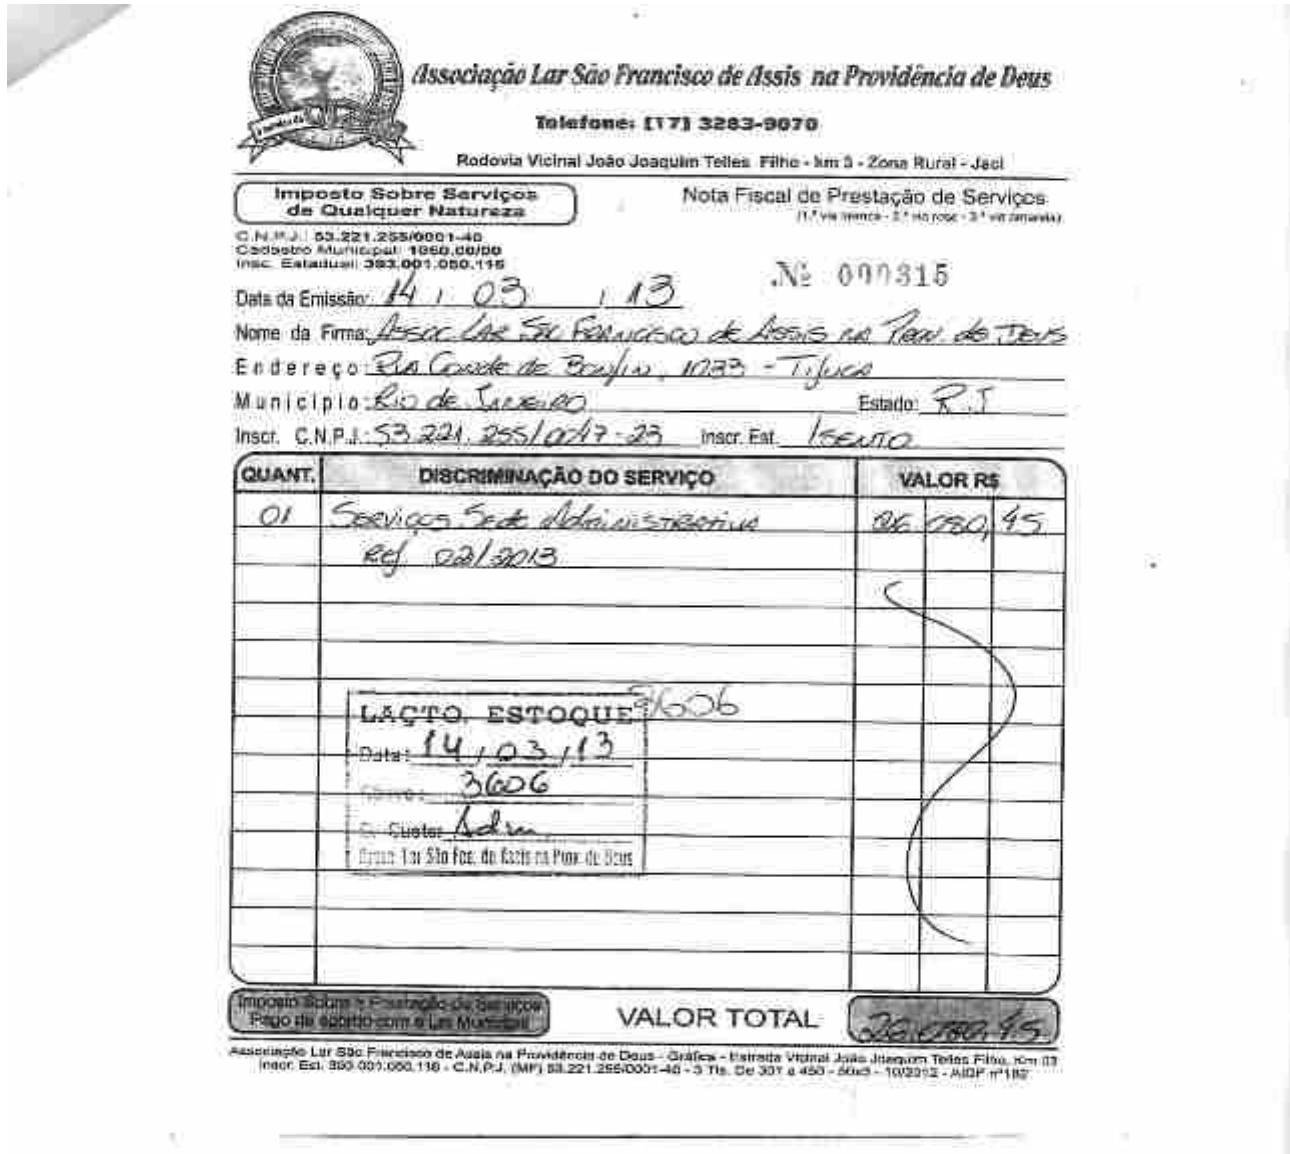 Associação Lar São Francisco de Assis na Providência de Deus
Telefone: [17] 3283-9070
Rodovia Vicinal João Joaquim Telles Filho - km 3 - Zona Rural - Jaci
Imposto Sobre Serviços
de Qualquer Natureza
Nota Fiscal de Prestação de Serviços
(1.ª via branca - 2.ª via rosa - 3.ª via amarela)
C.N.P.J.: 53.221.255/0001-40
Cadastro Municipal: 1050.00/00
Insc. Estadual: 393.001.050.116
Nº 000315
Data da Emissão: 14 / 03 / 13
Nome da Firma: Assoc Lar São Francisco de Assis na Prov. de Deus
Endereço: Rua Conde de Bonfin, 1033 - Tijuca
Município: Rio de Janeiro Estado: RJ
Inscr. C.N.P.J.: 53.221.255/0047-23 Inscr. Est. Isento
QUANT. DISCRIMINAÇÃO DO SERVIÇO VALOR R$
01 Serviços Sede Administrativa 26.080,45
Ref 02/2013
3606
LAÇTO. ESTOQUE
Data: 14/03/13
3606
C. Custo: Adm
Lar São Fco. de Assis na Prov. de Deus
Imposto Sobre a Prestação de Serviços
Pago de acordo com a Lei Municipal
VALOR TOTAL 26.080,45
Associação Lar São Francisco de Assis na Providência de Deus - Gráfica - Estrada Vicinal João Joaquim Telles Filho, Km 03
Inscr. Est. 393.001.050.116 - C.N.P.J. (MF) 53.221.255/0001-40 - 3 Tls. De 301 a 450 - 50x3 - 10/2012 - AIDF nº 182